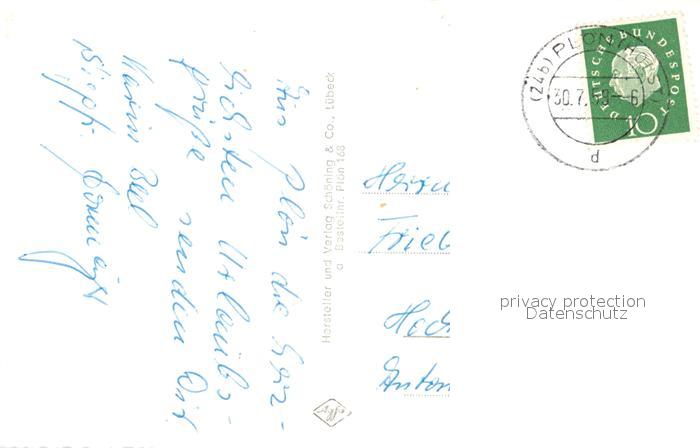 Aus Plön die herz-
lichsten Urlaubs-
grüße senden Dir
Hersteller und Verlag Schöning & Co., Lübeck
Bestellnr. Plön 168
Agfa
Herrn
Frie
Hoch
Anton
(24b) PLÖN
30.7.59-6
d
DEUTSCHE BUNDESPOST
10
privacy protection
Datenschutz